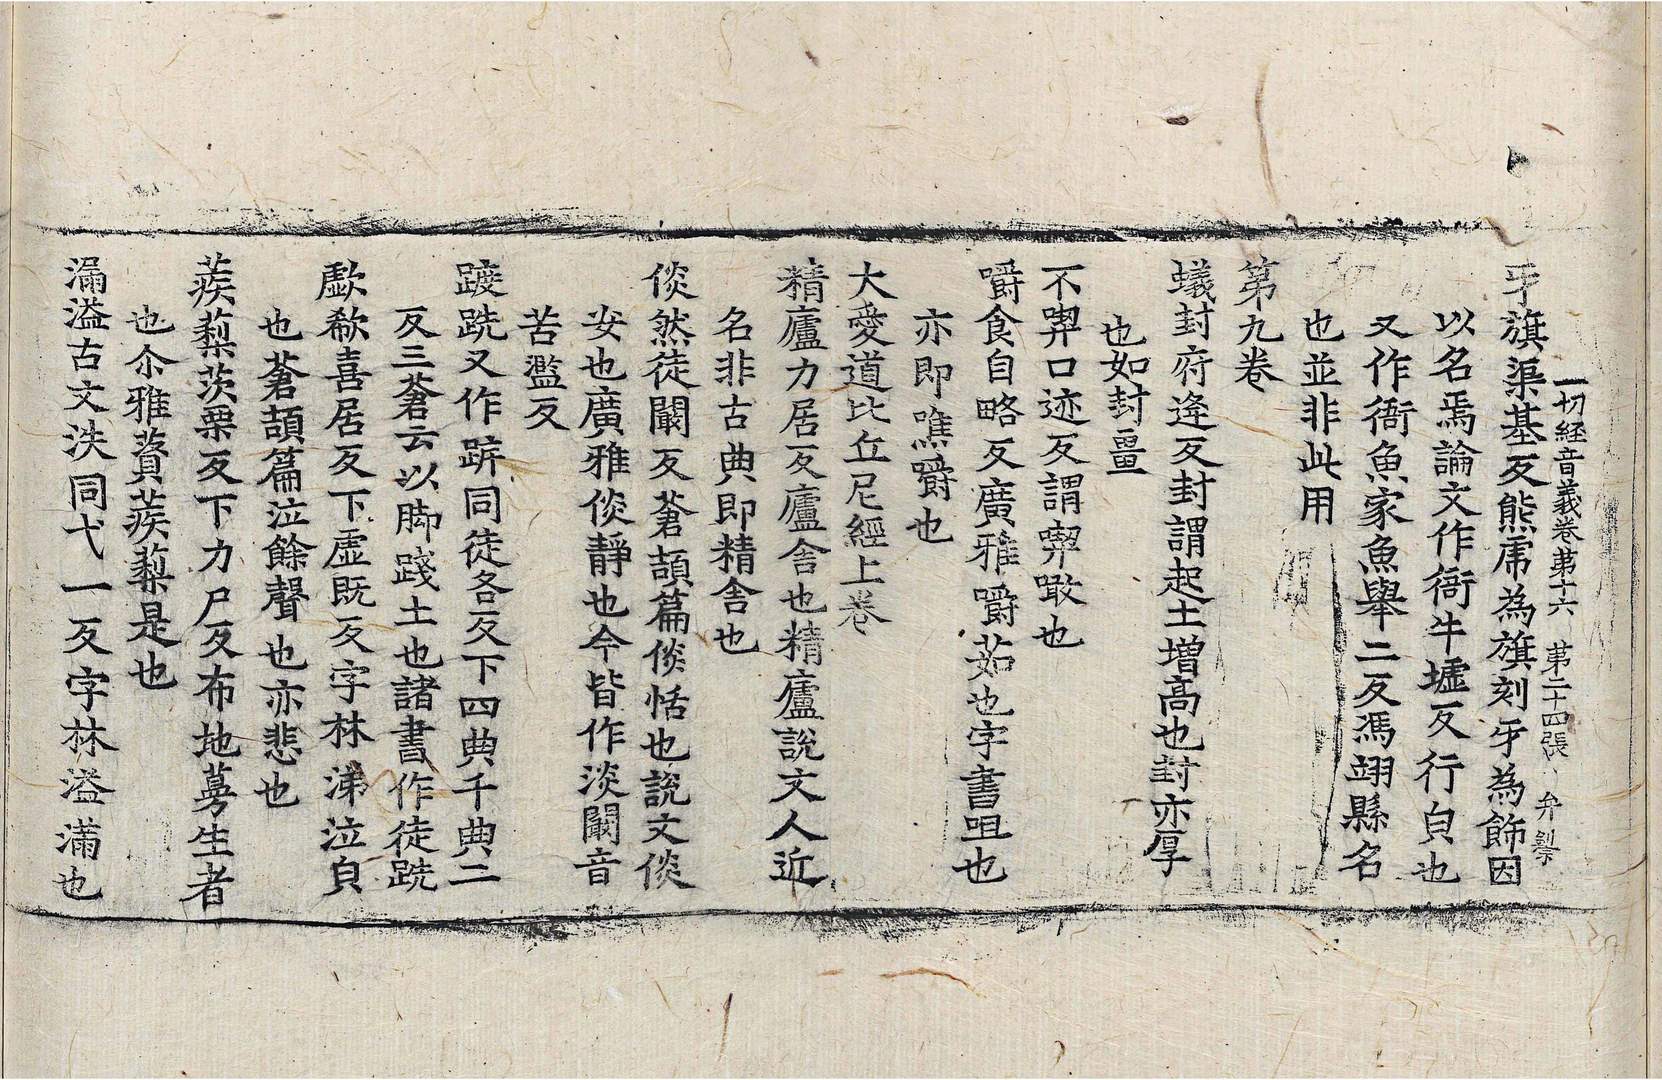 一切経音義卷第十六　第二十四張　弁
牙旗渠基反熊席為旗刻牙為飾因
以名焉論文作衙牛墟反行皃也
又作衙魚家魚舉二反馮翊縣名
也並非此用
第九卷
蟻封府逢反封謂起土增高也封亦厚
也如封畺
不㗁口迹反謂㗁噉也
嚼食自略反廣雅嚼茹也字書咀也
亦即噍嚼也
大愛道比丘尼經上卷
精廬力居反廬舎也精廬說文人近
名非古典即精舎也
倓然徒闞反蒼頡篇倓恬也說文倓
安也廣雅倓靜也今皆作淡闞音
苦濫反
䠠跣又作跰同徒各反下四典千典二
反三蒼云以脚踐土也諸書作徒跣
歔欷喜居反下虛既反字林涕泣皃
也蒼頡篇泣餘聲也亦悲也
蒺䔧茨栗反下力尸反布地蔓生者
也尒雅薋蒺䔧是也
漏溢古文泆同弋一反字林溢滿也